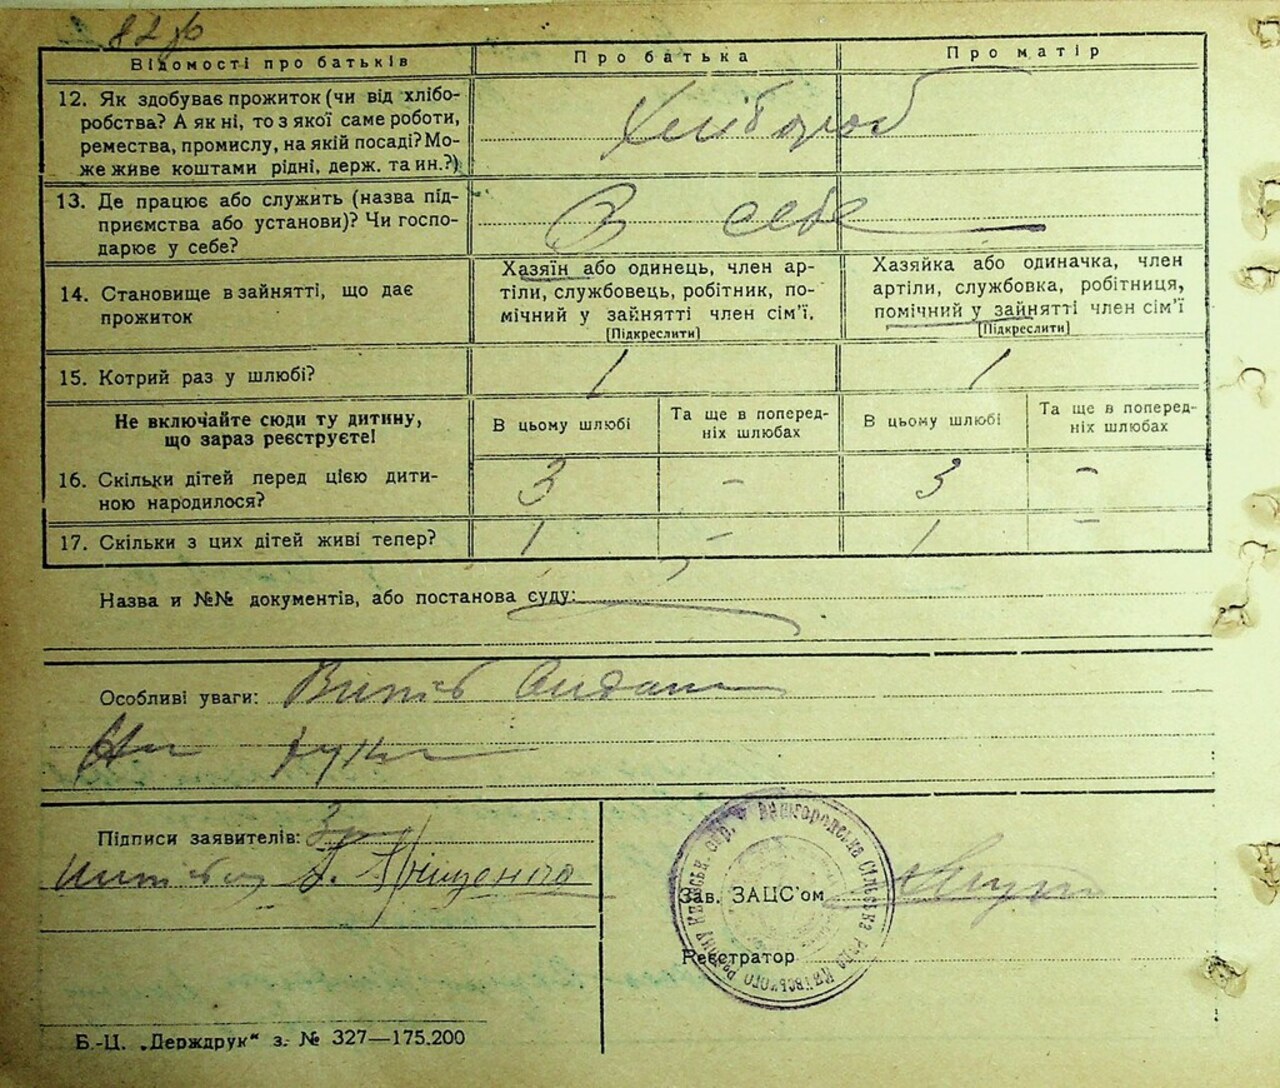 82 зв
Відомості про батьків
Про батька
Про матір
12. Як здобуває прожиток (чи від хлібо-
робства? А як ні, то з якої саме роботи,
ремества, промислу, на якій посаді? Мо-
же живе коштами рідні, держ. та ин.?)
Хлібороб
13. Де працює або служить (назва під-
приємства або установи)? Чи госпо-
дарює у себе?
В себе
14. Становище в зайнятті, що дає
прожиток
Хазяїн або одинець, член ар-
тіли, службовець, робітник, по-
мічний у зайнятті член сім'ї.
[Підкреслити]
Хазяйка або одиначка, член
артіли, службовка, робітниця,
помічний у зайнятті член сім'ї
[Підкреслити]
15. Котрий раз у шлюбі?
1
1
Не включайте сюди ту дитину,
що зараз реєструєте!
В цьому шлюбі
Та ще в поперед-
ніх шлюбах
В цьому шлюбі
Та ще в поперед-
ніх шлюбах
16. Скільки дітей перед цією дити-
ною народилося?
3 - 3 -
17. Скільки з цих дітей живі тепер?
1 - 1 -
Назва и №№ документів, або постанова суду:
Особливі уваги: Випис
На руки
Підписи заявителів:
Грищенко
Зав. ЗАЦС'ом
Реєстратор
Вишгородська сільська рада Київського району Київськ. окр.
Б.-Ц. „Держдрук“ з. № 327—175.200